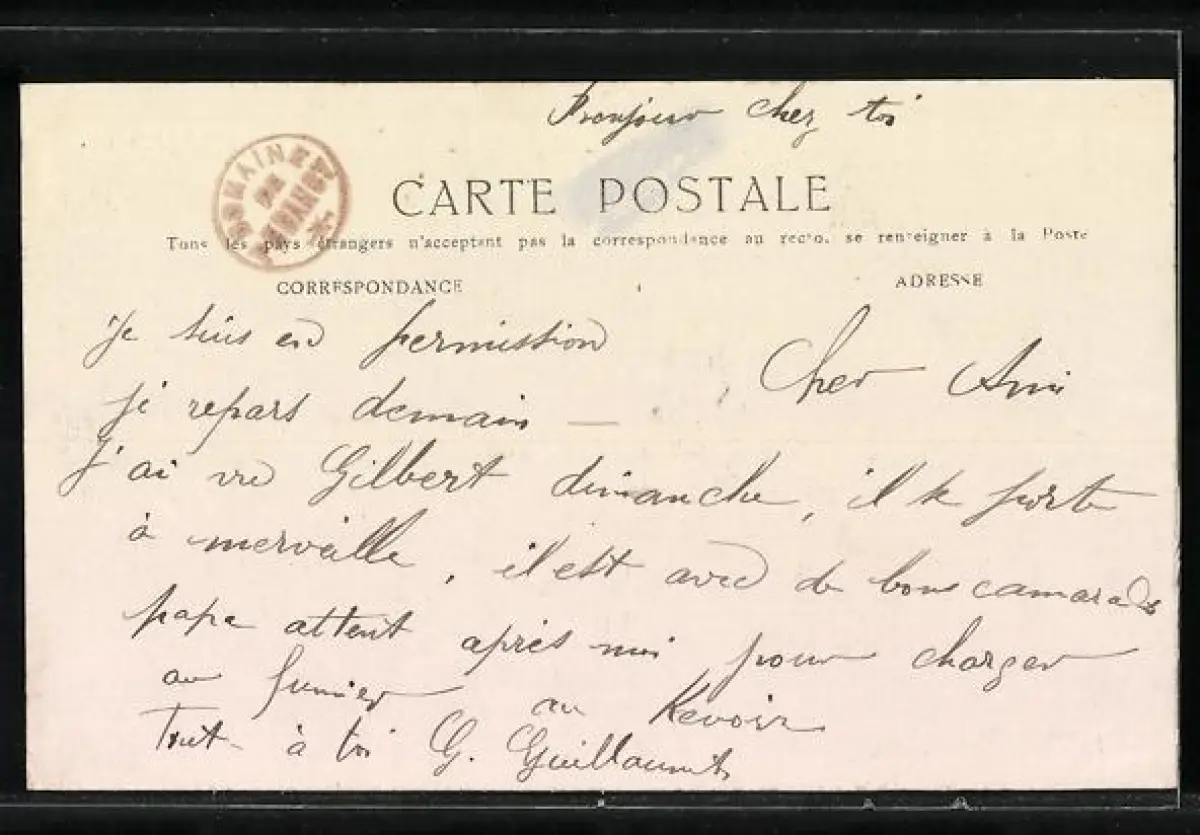 Bonjour chez toi
CARTE POSTALE
Tous les pays étrangers n'acceptent pas la correspondance au recto, se renseigner à la Poste
CORRESPONDANCE
ADRESSE
Cher Ami
Je suis en permission
je repars demain —
J'ai vu Gilbert dimanche, il se porte
à merveille, il est avec de bons camarades
papa attent après moi pour charger
au fumier au Revoir
Tout à toi G. Guillaumet